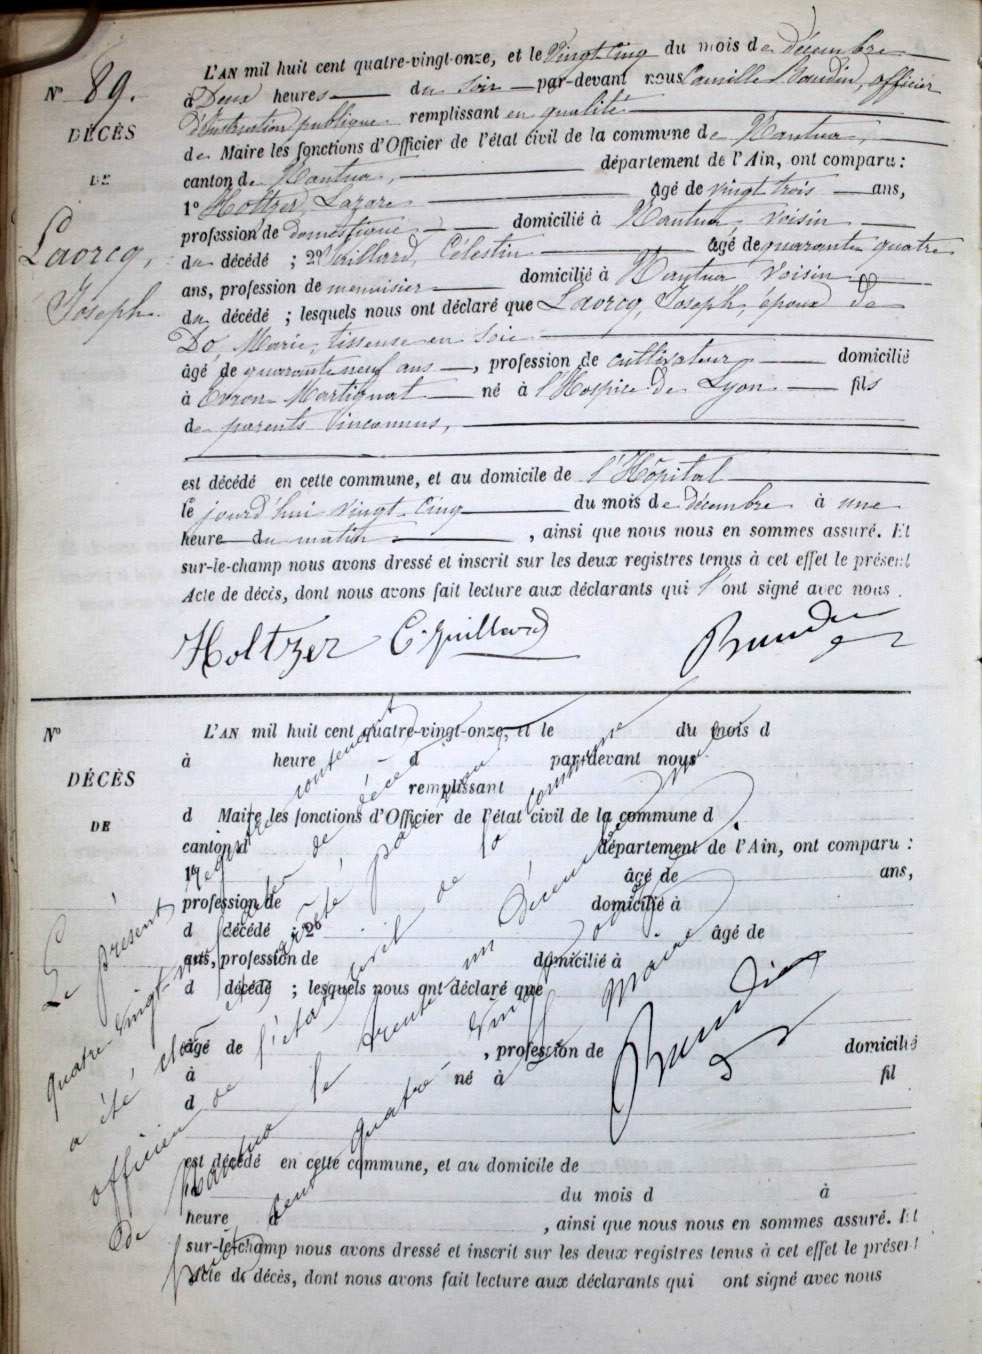 L'AN mil huit cent quatre-vingt-onze, et le Vingt Cinq du mois de décembre
N° 89. à Deux heures du soir par-devant nous Camille Baudin, officier
DÉCÈS d'Instruction publique remplissant en qualité
de Maire les fonctions d'Officier de l'état civil de la commune de Nantua,
DE canton de Nantua, département de l'Ain, ont comparu :
1° Holtzer, Lazare âgé de vingt trois ans,
Lavorcq, profession de domestique domicilié à Nantua voisin
du décédé ; 2° Vuillard, Célestin âgé de quarante quatre
Joseph. ans, profession de menuisier domicilié à Nantua voisin
du décédé ; lesquels nous ont déclaré que Lavorcq, Joseph, époux de
Do, Marie, tisseuse en soie
âgé de quarante neuf ans, profession de cultivateur domicilié
à Evron Martignat né à l'Hospice de Lyon fils
de parents inconnus,
est décédé en cette commune, et au domicile de l'Hôpital
le jourd'hui vingt Cinq du mois de décembre à une
heure du matin , ainsi que nous nous en sommes assuré. Et
sur-le-champ nous avons dressé et inscrit sur les deux registres tenus à cet effet le présent
Acte de décès, dont nous avons fait lecture aux déclarants qui l'ont signé avec nous.
Holtzer C. Vuillard Baudin
N° L'AN mil huit cent quatre-vingt-onze, et le du mois d
à heure d par-devant nous
DÉCÈS remplissant
d Maire les fonctions d'Officier de l'état civil de la commune d
DE canton d département de l'Ain, ont comparu :
1° âgé de ans,
profession de domicilié à
d décédé ; 2° âgé de
ans, profession de domicilié à
d décédé ; lesquels nous ont déclaré que
âgé de , profession de domicilié
à né à fil
d
est décédé en cette commune, et au domicile de
le du mois d à
heure d , ainsi que nous nous en sommes assuré. Et
sur-le-champ nous avons dressé et inscrit sur les deux registres tenus à cet effet le présent
Acte de décès, dont nous avons fait lecture aux déclarants qui ont signé avec nous
Le présent registre contenant
quatre vingt-neuf actes de décès
a été, clos et arrêté par nous
officier de l'état civil de la commune
de Nantua le trente un Décembre mil
huit cent quatre-vingt onze.
Le Maire
Baudin